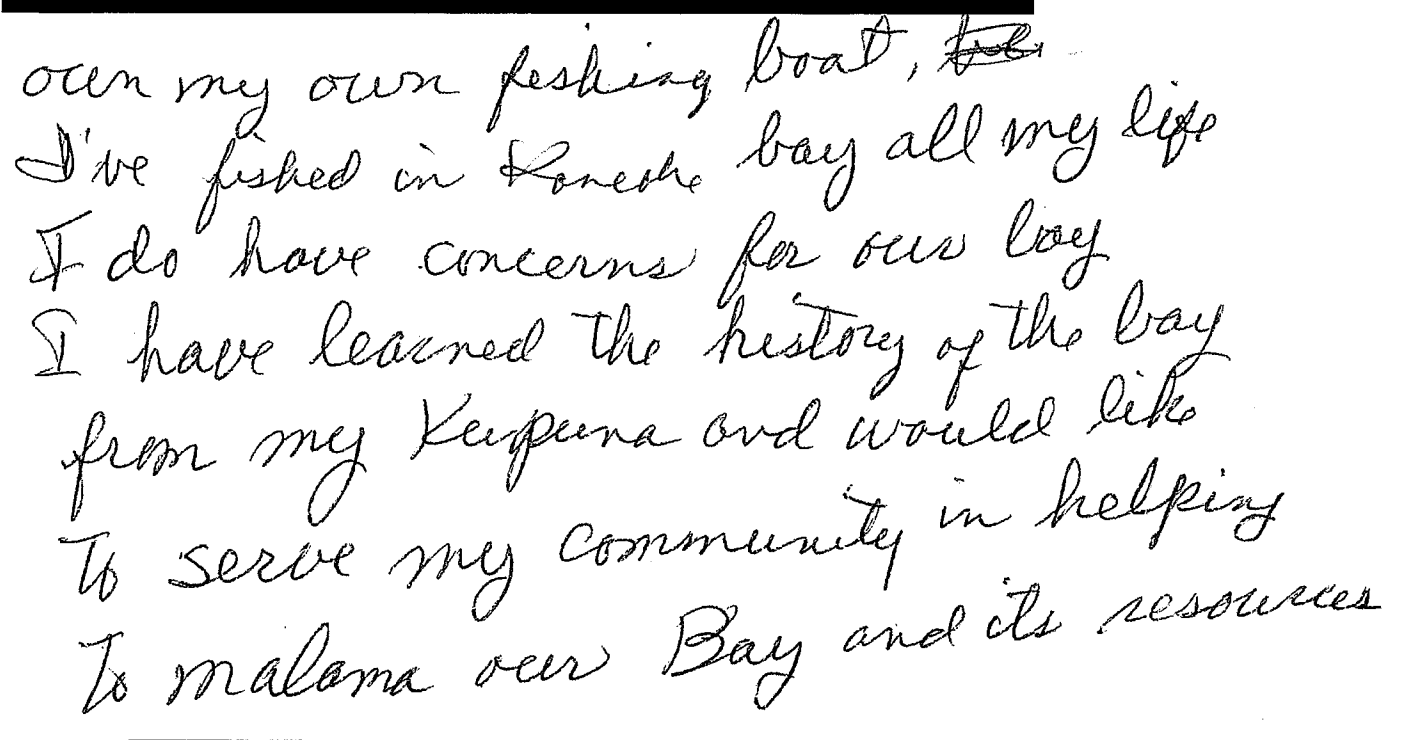 own my own fishing boat,
I've fished in Kaneohe bay all my life
I do have concerns for our bay
I have learned the history of the bay
from my Kupuna and would like
To serve my community in helping
To malama our Bay and its resources